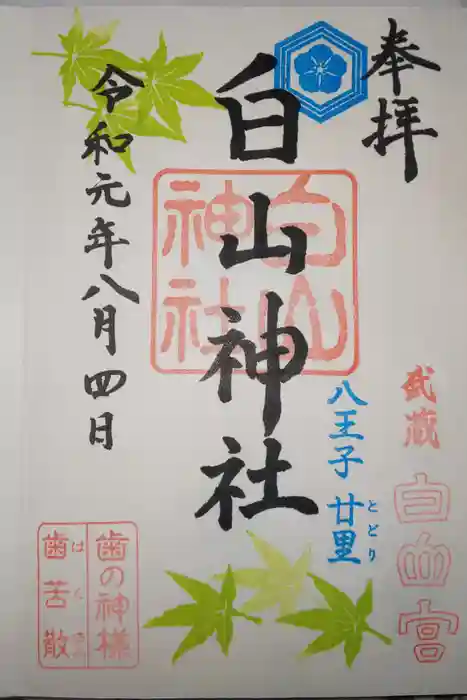 奉拝
白山神社
白山
神社
令和元年八月四日
武蔵
白山宮
八王子 廿里
とどり
歯の神様
歯苦散